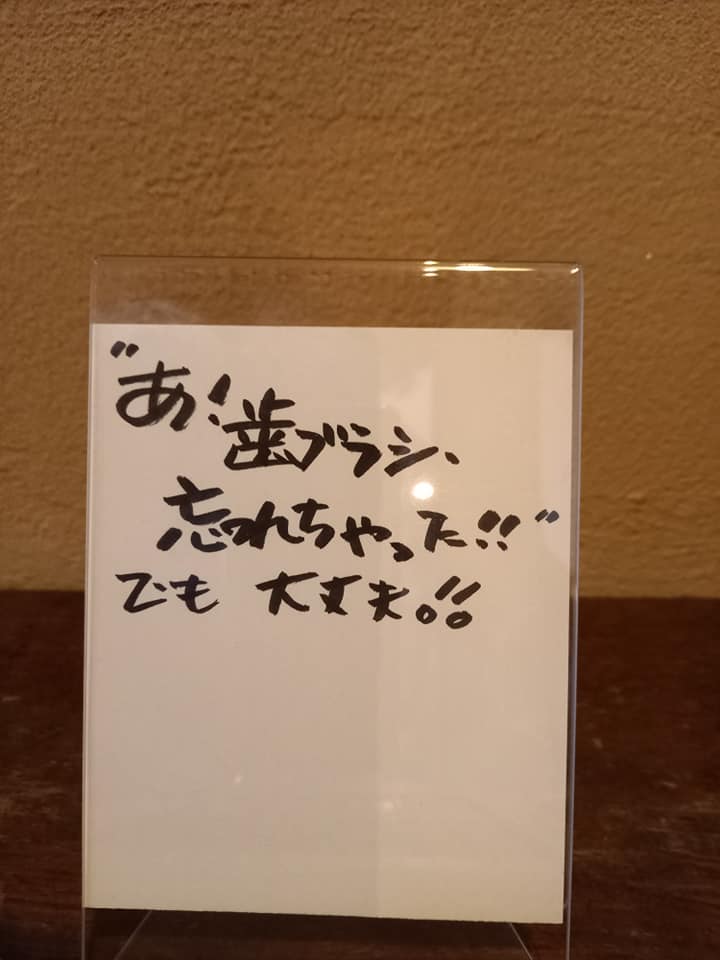 "あ!歯ブラシ、
忘れちゃった!!"
でも 大丈夫!!